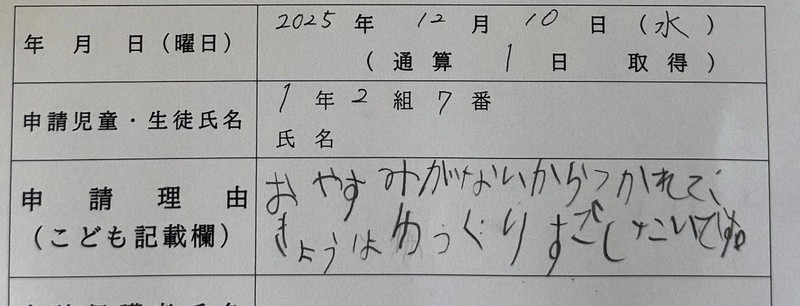 年月日（曜日） 2025年12月10日（水）
（通算1日取得）
申請児童・生徒氏名 1年2組7番
氏名
申請理由
（こども記載欄）
おやすみがないからつかれて、
きょうはゆっくりすごしたいです。